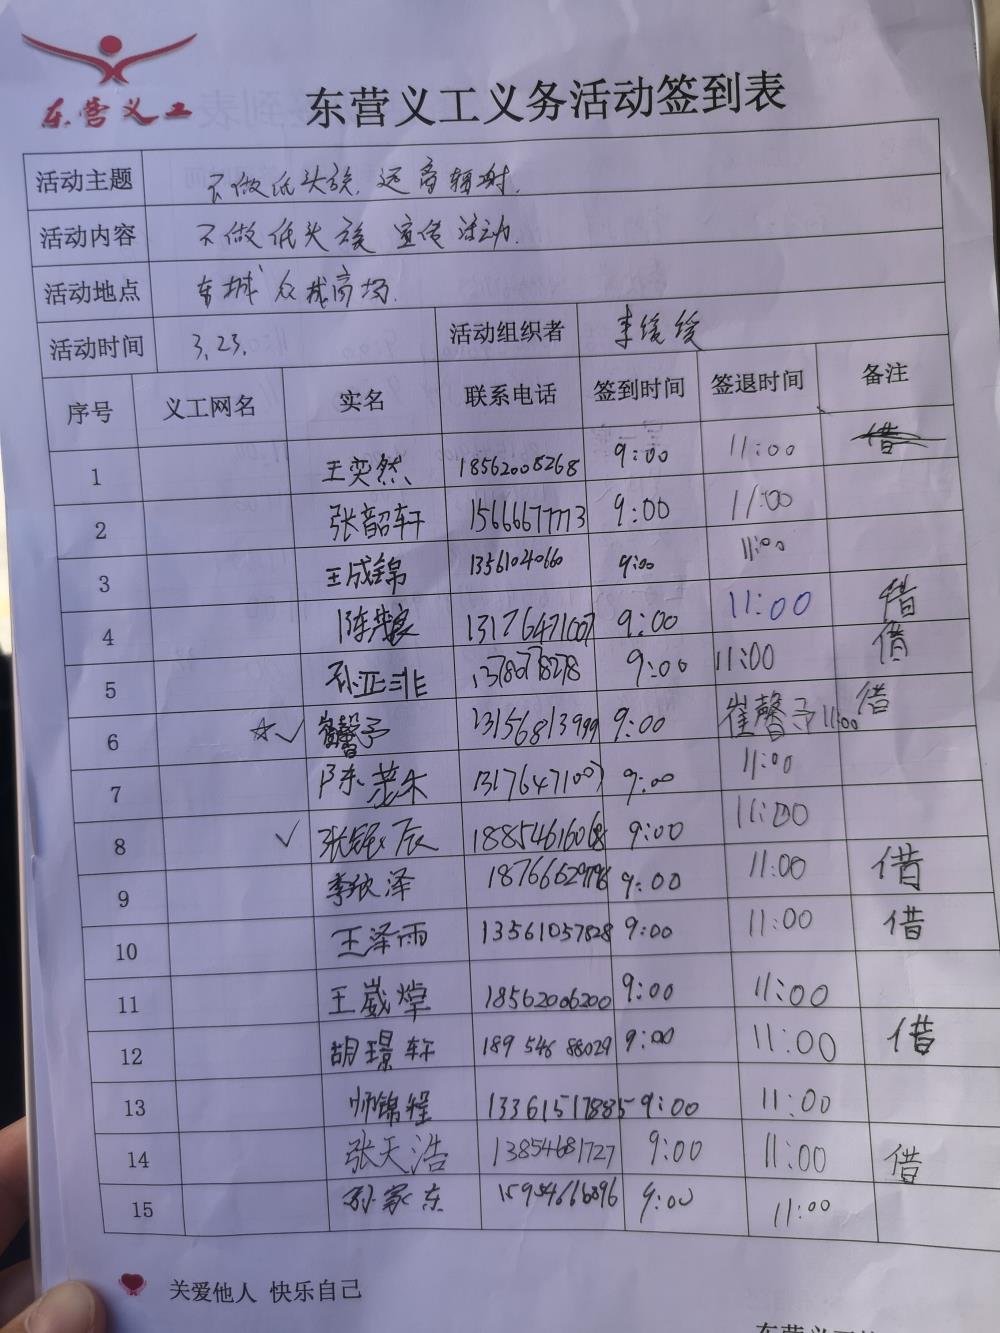 东营义工
东营义工义务活动签到表
活动主题 不做低头族,远离辐射.
活动内容 不做低头族 宣传活动.
活动地点 东城 众成商场.
活动时间 3.23. 活动组织者 李媛媛
序号 义工网名 实名 联系电话 签到时间 签退时间 备注
1 王奕然 18562008268 9:00 11:00
2 张韶轩 15666677773 9:00 11:00
3 王成锦 1356104060 9:00 11:00
4 13176471007 9:00 11:00 借
5 孙亚菲 9:00 11:00 借
6 ☆✓ 崔馨予 9:00 崔馨予 11:00 借
7 13176471007 9:00 11:00
8 ✓ 18854616068 9:00 11:00
9 9:00 11:00 借
10 王泽雨 13561057828 9:00 11:00 借
11 王崴煌 18562006200 9:00 11:00
12 胡璟轩 189 546 88029 9:00 11:00 借
13 帅锦程 13361517885 9:00 11:00
14 张天浩 13854681727 9:00 11:00 借
15 孙家东 9:00 11:00
关爱他人 快乐自己